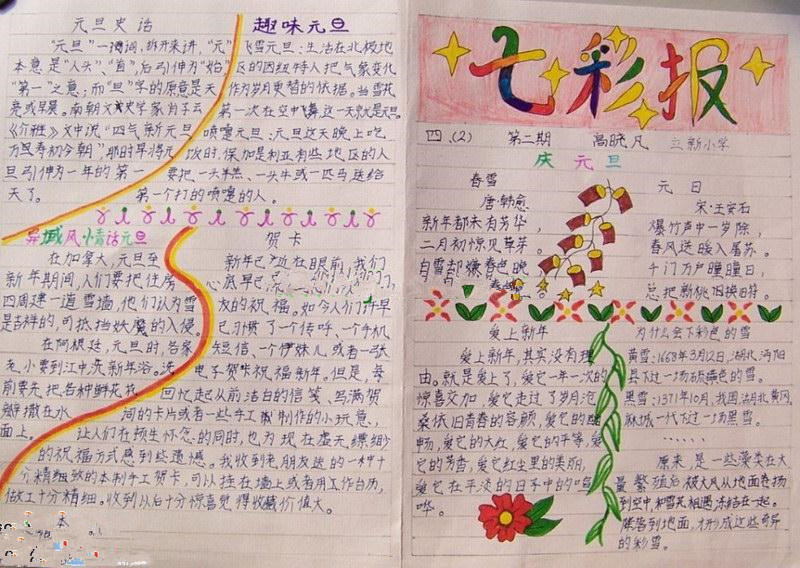 元旦史话
“元旦”一词,拆开来讲,“元”
本意是“人头”、“首”,后引伸为“始”
“第一”之意;而“旦”字的原意是天
亮或早晨。南朝文史学家肖子云
《介雅》文中说“四气新元旦
万民寿初今朝”,那时早将元
旦引伸为一年的第一
天了。
趣味元旦
飞雪元旦:生活在北极地
区的因纽特人把气象变化
作为岁月更替的依据。当雪花
第一次在空中飞舞这一天就是元旦
喷嚏元旦:元旦这天晚上吃
饭时,保加是利亚有些地区的人
要把一头羊羔、一头牛或一匹马送给
第一个打的喷嚏的人。
异域风情话元旦
在加拿大,元旦至
新年期间,人们要把住房
四周建一道雪墙,他们认为雪
是吉祥的,可抵挡妖魔的入侵。
在阿根廷,元旦时,各家
老小要到江中洗新年浴。洗
前要先把各种鲜花花
瓣撒在水
面上。
贺卡
新年已近在眼前,我们
心底早已
友的祝福。如今人们许早
已习惯了一个传呼、一个手机
短信、一个伊妹儿或者一张
电子贺卡祝福新年。但是,每
回忆起从前洁白的信笺、写满贺
词的卡片或者一些手工制作的小玩意,
让人们在顿生怀念的同时,也为现在虚无缥缈
的祝福方式感到些遗憾。我收到老朋友送的一种十
分精细致的本制手工贺卡,可以挂在墙上或者用工作台历,
做工十分精细。收到以后十分惊喜觉得收藏价值大。
七彩报
四.(2) 第二期 高晓凡 立新小学
庆元旦
春雪
唐·韩愈
新年都未有芳华,
二月初惊见草芽。
白雪却嫌春色晚
元日
宋·王安石
爆竹声中一岁除,
春风送暖入屠苏。
千门万户瞳瞳日,
总把新桃旧换旧符。
爱上新年
爱上新年,其实没有理
由。就是爱上了,爱它一年一次的
惊喜交加,爱它走过了岁月沧
桑依旧青春的容颜,爱它的酣
畅,爱它的大红,爱它的平等,爱
它的芳香,爱它红尘里的美丽,
爱它在平淡的日子中的喧
哗。
为什么会下彩色的雪
黄雪:1668年3月12日,湖北沔阳
县下过一场硫磺色的雪。
黑雪:1371年10月,我国湖北黄冈
麻城一代下过一场黑雪。
······
原来,是一些藻类在大
量繁殖后被大风从地面卷扬
到空中,和雪花相遇冻结在一起。
降落到地面,才形成这些奇异
的彩雪。